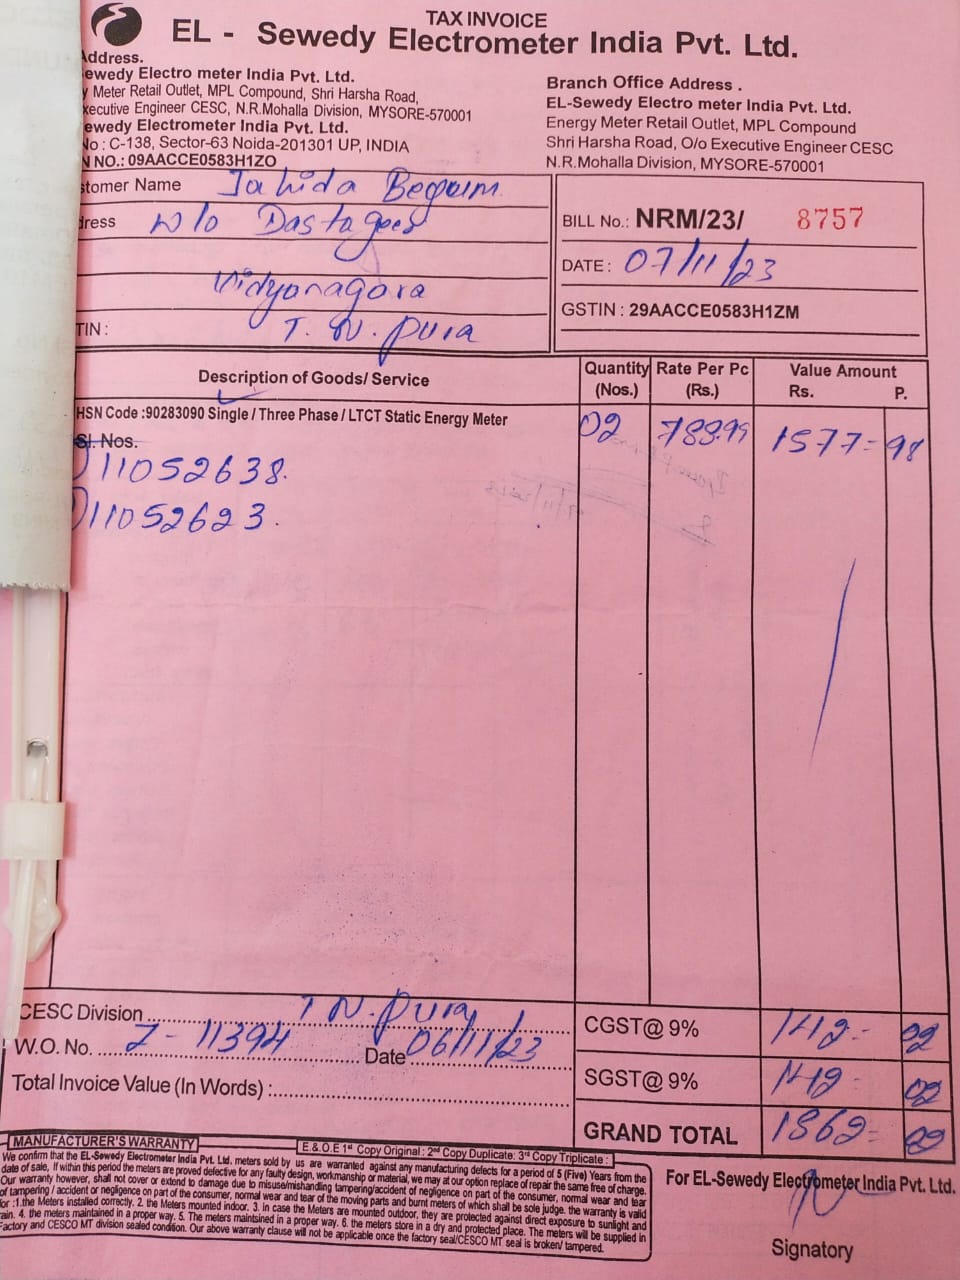 TAX INVOICE
EL - Sewedy Electrometer India Pvt. Ltd.
Address.
ewedy Electro meter India Pvt. Ltd.
y Meter Retail Outlet, MPL Compound, Shri Harsha Road,
xecutive Engineer CESC, N.R.Mohalla Division, MYSORE-570001
ewedy Electrometer India Pvt. Ltd.
No : C-138, Sector-63 Noida-201301 UP, INDIA
N NO.: 09AACCE0583H1ZO
Branch Office Address .
EL-Sewedy Electro meter India Pvt. Ltd.
Energy Meter Retail Outlet, MPL Compound
Shri Harsha Road, O/o Executive Engineer CESC
N.R.Mohalla Division, MYSORE-570001
stomer Name Jahida Begaum
dress w/o Dastageer
Vidyanagara
TIN : T. N. Pura
BILL No.: NRM/23/ 8757
DATE : 07/11/23
GSTIN : 29AACCE0583H1ZM
Description of Goods/ Service Quantity (Nos.) Rate Per Pc (Rs.) Value Amount Rs. P.
HSN Code :90283090 Single / Three Phase / LTCT Static Energy Meter 02 788.99 1577=98
Sl. Nos.
11052638.
11052623.
CESC Division T N. Pura
W.O. No. 7- 11394 Date 06/11/23
Total Invoice Value (In Words) :
CGST@ 9% 142- 02
SGST@ 9% 142- 02
GRAND TOTAL 1862= 02
MANUFACTURER'S WARRANTY
E.& O.E 1st Copy Original : 2nd Copy Duplicate: 3rd Copy Triplicate :
We confirm that the EL-Sewedy Electrometer India Pvt. Ltd. meters sold by us are warranted against any manufacturing defects for a period of 5 (Five) Years from the
date of sale, If within this period the meters are proved defective for any faulty design, workmanship or material, we may at our option replace of repair the same free of charge.
Our warranty however, shall not cover or extend to damage due to misuse/mishandling tampering/accident of negligence on part of the consumer, normal wear and tear
of tampering / accident or negligence on part of the consumer, normal wear and tear of the moving parts and burnt meters of which shall be sole judge. the warranty is valid
for :1.the Meters installed correctly. 2. the Meters mounted indoor. 3. in case the Meters are mounted outdoor, they are protected against direct exposure to sunlight and
rain. 4. the meters maintained in a proper way. 5. The meters maintsined in a proper way. 6. the meters store in a dry and protected place. The meters will be supplied in
Factory and CESCO MT division sealed condition. Our above warranty clause will not be applicable once the factory seal/CESCO MT seal is broken/ tampered.
For EL-Sewedy Electrometer India Pvt. Ltd.
Signatory